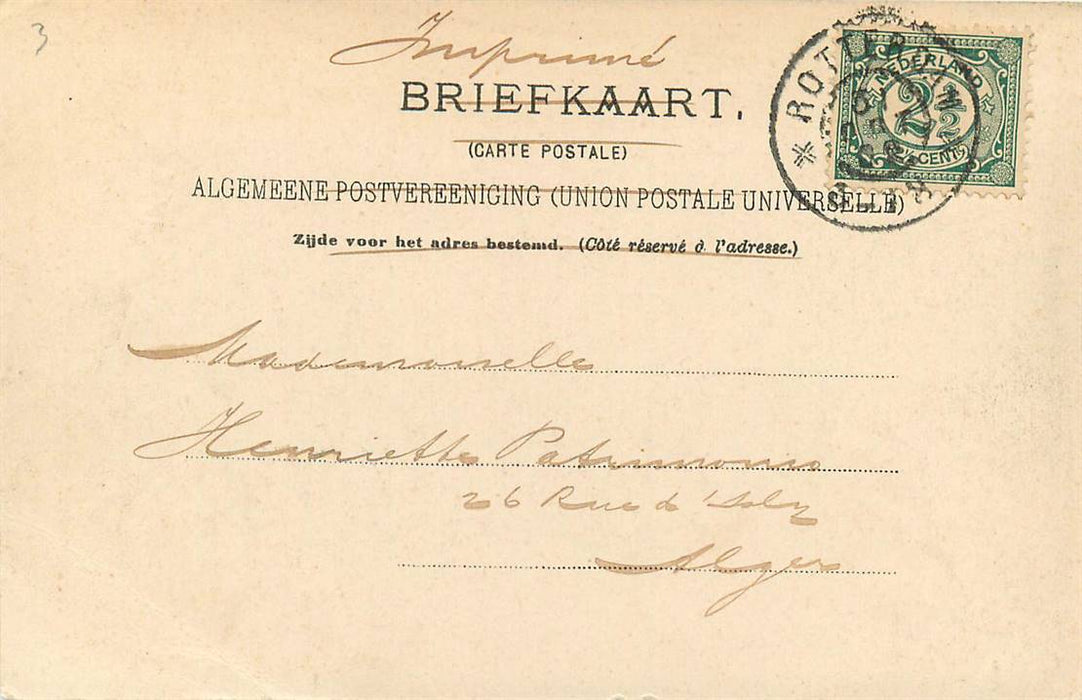 3
Imprimé
BRIEFKAART.
(CARTE POSTALE)
ALGEMEENE POSTVEREENIGING (UNION POSTALE UNIVERSELLE)
Zijde voor het adres bestemd. (Côté réservé à l'adresse.)
NEDERLAND
2½
2½ CENT
ROTTER
Mademoiselle
Henriette Patrimonio
26 Rue d'Isly
Alger